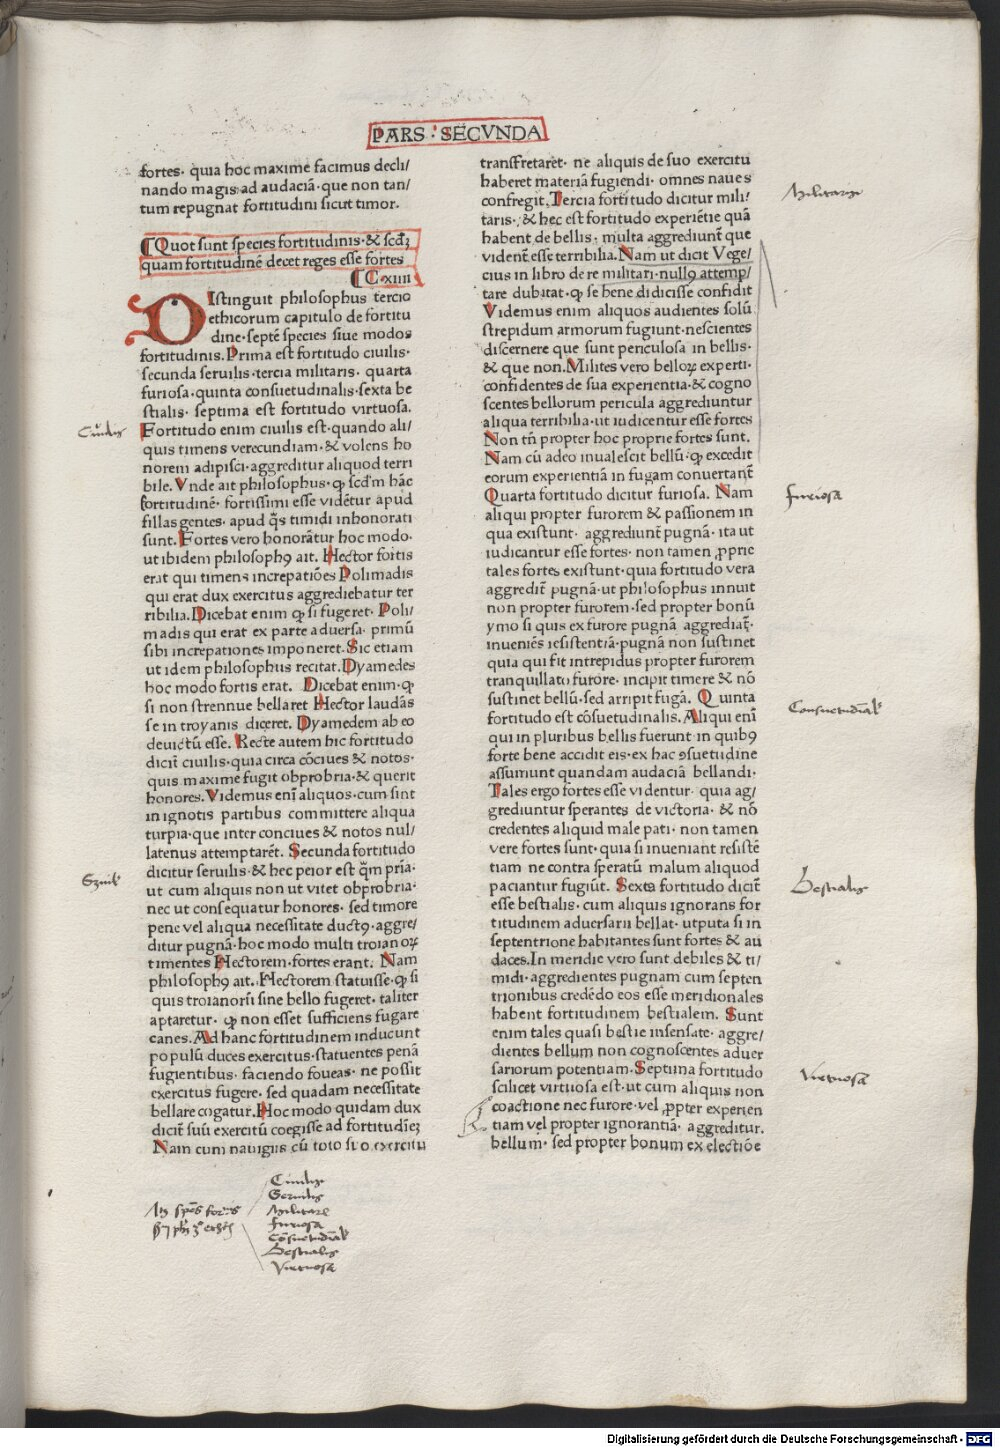 PARS · SECVNDA
fortes· quia hoc maxime facimus decli/
nando magis ad audaciã· que non tan/
tum repugnat fortitudini sicut timor.
¶ Quot sunt species fortitudinis· & scd̃ȝ
quam fortitudinẽ decet reges esse fortes
¶ C· xiiii
DIstinguit philosophus tercio
ethicorum capitulo de fortitu
dine· septẽ species siue modos
fortitudinis. Prima est fortitudo ciuilis·
secunda seruilis· tercia militaris· quarta
furiosa· quinta consuetudinalis· sexta be
stialis· septima est fortitudo virtuosa.
Fortitudo enim ciuilis est· quando ali/
quis timens verecundiam· & volens ho
norem adipisci· aggreditur aliquod terri
bile. Vnde ait philosophus· ꝙ scd̃m hãc
fortitudinẽ· fortissimi esse vidẽtur apud
fillas gentes· apud q̃s timidi inhonorati
sunt. Fortes vero honorãtur hoc modo·
ut ibidem philosophꝰ ait. Hector fortis
erat qui timens increpatiões Polimadis
qui erat dux exercitus aggrediebatur ter
ribilia. Dicebat enim ꝙ si fugeret· Poli/
madis qui erat ex parte aduersa· primũ
sibi increpationes imponeret. Sic etiam
ut idem philosophus recitat. Dyamedes
hoc modo fortis erat. Dicebat enim· ꝙ
si non strennue bellaret Hector laudãs
se in troyanis diceret. Dyamedem ab eo
deuictũ esse. Recte autem hic fortitudo
dicit̃ ciuilis· quia circa cõciues & notos·
quis maxime fugit obprobria· & querit
honores. Videmus eni͂ aliquos· cum sint
in ignotis partibus committere aliqua
turpia· que inter conciues & notos nul/
latenus attemptarẽt. Secunda fortitudo
dicitur seruilis· & hec peior est q̃m pri̅a·
ut cum aliquis non ut vitet obprobria·
nec ut consequatur honores· sed timore
pene vel aliqua necessitate ductꝰ· aggre/
ditur pugnã· hoc modo multi troianoꝝ
timentes Hectorem· fortes erant. Nam
philosophꝰ ait. Hectorem statuisse· ꝙ si
quis troianorũ sine bello fugeret· taliter
aptaretur· ꝙ non esset sufficiens fugare
canes. Ad hanc fortitudinem inducunt
populũ duces exercitus· statuentes penã
fugientibus· faciendo foueas· ne possit
exercitus fugere· sed quadam necessitate
bellare cogatur. Hoc modo quidam dux
dicit̃ suũ exercitũ coegisse ad fortitudi͂eȝ
Nam cum nauigiis cũ toto suo exercitu
transfretaret· ne aliquis de suo exercitu
haberet materiã fugiendi· omnes naues
confregit, Tercia fortitudo dicitur mili/
taris· & hec est fortitudo experiẽtie quã
habent de bellis· multa aggrediunt̃ que
vident̃ esse terribilia. Nam ut dicit Vege/
cius in libro de re militari· nullꝰ attemp/
tare dubitat· ꝙ se bene didicisse confidit
Videmus enim aliquos audientes solũ
strepidum armorum fugiunt· nescientes
discernere que sunt periculosa in bellis·
& que non. Milites vero belloꝝ experti·
confidentes de sua experientia· & cogno
scentes bellorum pericula aggrediuntur
aliqua terribilia· ut iudicentur esse fortes
Non tñ propter hoc proprie fortes sunt.
Nam cũ adeo inualescit bellũ· ꝙ excedit
eorum experientiã in fugam conuertant̃
Quarta fortitudo dicitur furiosa. Nam
aliqui propter furorem & passionem in
qua existunt· aggrediunt̃ pugnã· ita ut
iudicantur esse fortes· non tamen ꝓprie
tales fortes existunt· quia fortitudo vera
aggredit̃ pugnã· ut philosophus innuit
non propter furorem· sed propter bonũ
ymo si quis ex furore pugnã aggrediat̃·
inueniẽs resistentiã· pugnã non sustinet
quia qui fit intrepidus propter furorem
tranquillato furore· incipit timere & nõ
sustinet bellũ· sed arripit fugã. Quinta
fortitudo est cõsuetudinalis. Aliqui eni͂
qui in pluribus bellis fuerunt in quibꝰ
forte bene accidit eis· ex hac ꝯsuetudine
assumunt quandam audaciã bellandi·
Tales ergo fortes esse videntur· quia ag/
grediuntur sperantes de victoria· & nõ
credentes aliquid male pati· non tamen
vere fortes sunt· quia si inueniant resistẽ
tiam ne contra speratũ malum aliquod
paciantur fugiũt. Sexta fortitudo dicit̃
esse bestialis· cum aliquis ignorans for
titudinem aduersarii bellat· utputa si in
septentrione habitantes sunt fortes & au
daces. In meridie vero sunt debiles & ti/
midi· aggredientes pugnam cum septen
trionibus credẽdo eos esse meridionales
habent fortitudinem bestialem. Sunt
enim tales quasi bestie insensate· aggre/
dientes bellum non cognoscentes aduer
sariorum potentiam. Septima fortitudo
scilicet virtuosa est· ut cum aliquis non
coactione nec furore· vel ꝓpter experien
tiam vel propter ignorantiã· aggreditur.
bellum· sed propter bonum ex electiõe
Ciuilis
Militaris
furiosa
Consuetudinal
Bestialis
Virtuosa
Ciuilis
Seruilis
Militaris
furiosa
Bestialis
Virtuosa
Digitalisierung gefördert durch die Deutsche Forschungsgemeinschaft - DFG